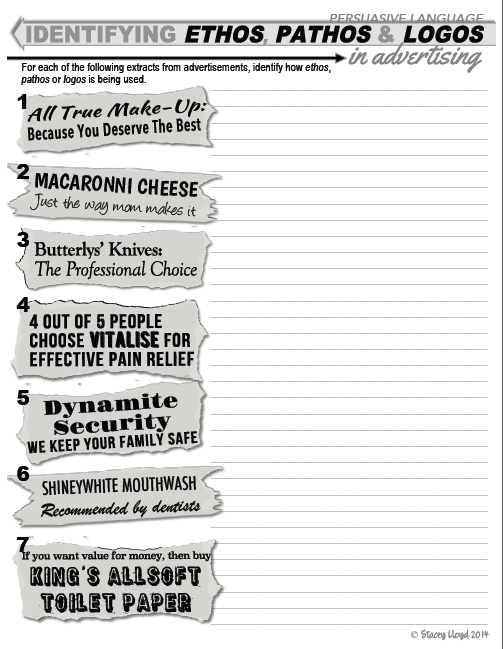 PERSUASIVE LANGUAGE
IDENTIFYING ETHOS, PATHOS & LOGOS
in advertising
For each of the following extracts from advertisements, identify how ethos,
pathos or logos is being used.
1
All True Make-Up:
Because You Deserve The Best
2
MACARONNI CHEESE
Just the way mom makes it
3
Butterlys' Knives:
The Professional Choice
4
4 OUT OF 5 PEOPLE
CHOOSE VITALISE FOR
EFFECTIVE PAIN RELIEF
5
Dynamite
Security
WE KEEP YOUR FAMILY SAFE
6
SHINEYWHITE MOUTHWASH
Recommended by dentists
7
If you want value for money, then buy
KING'S ALLSOFT
TOILET PAPER
© Stacey Lloyd 2014